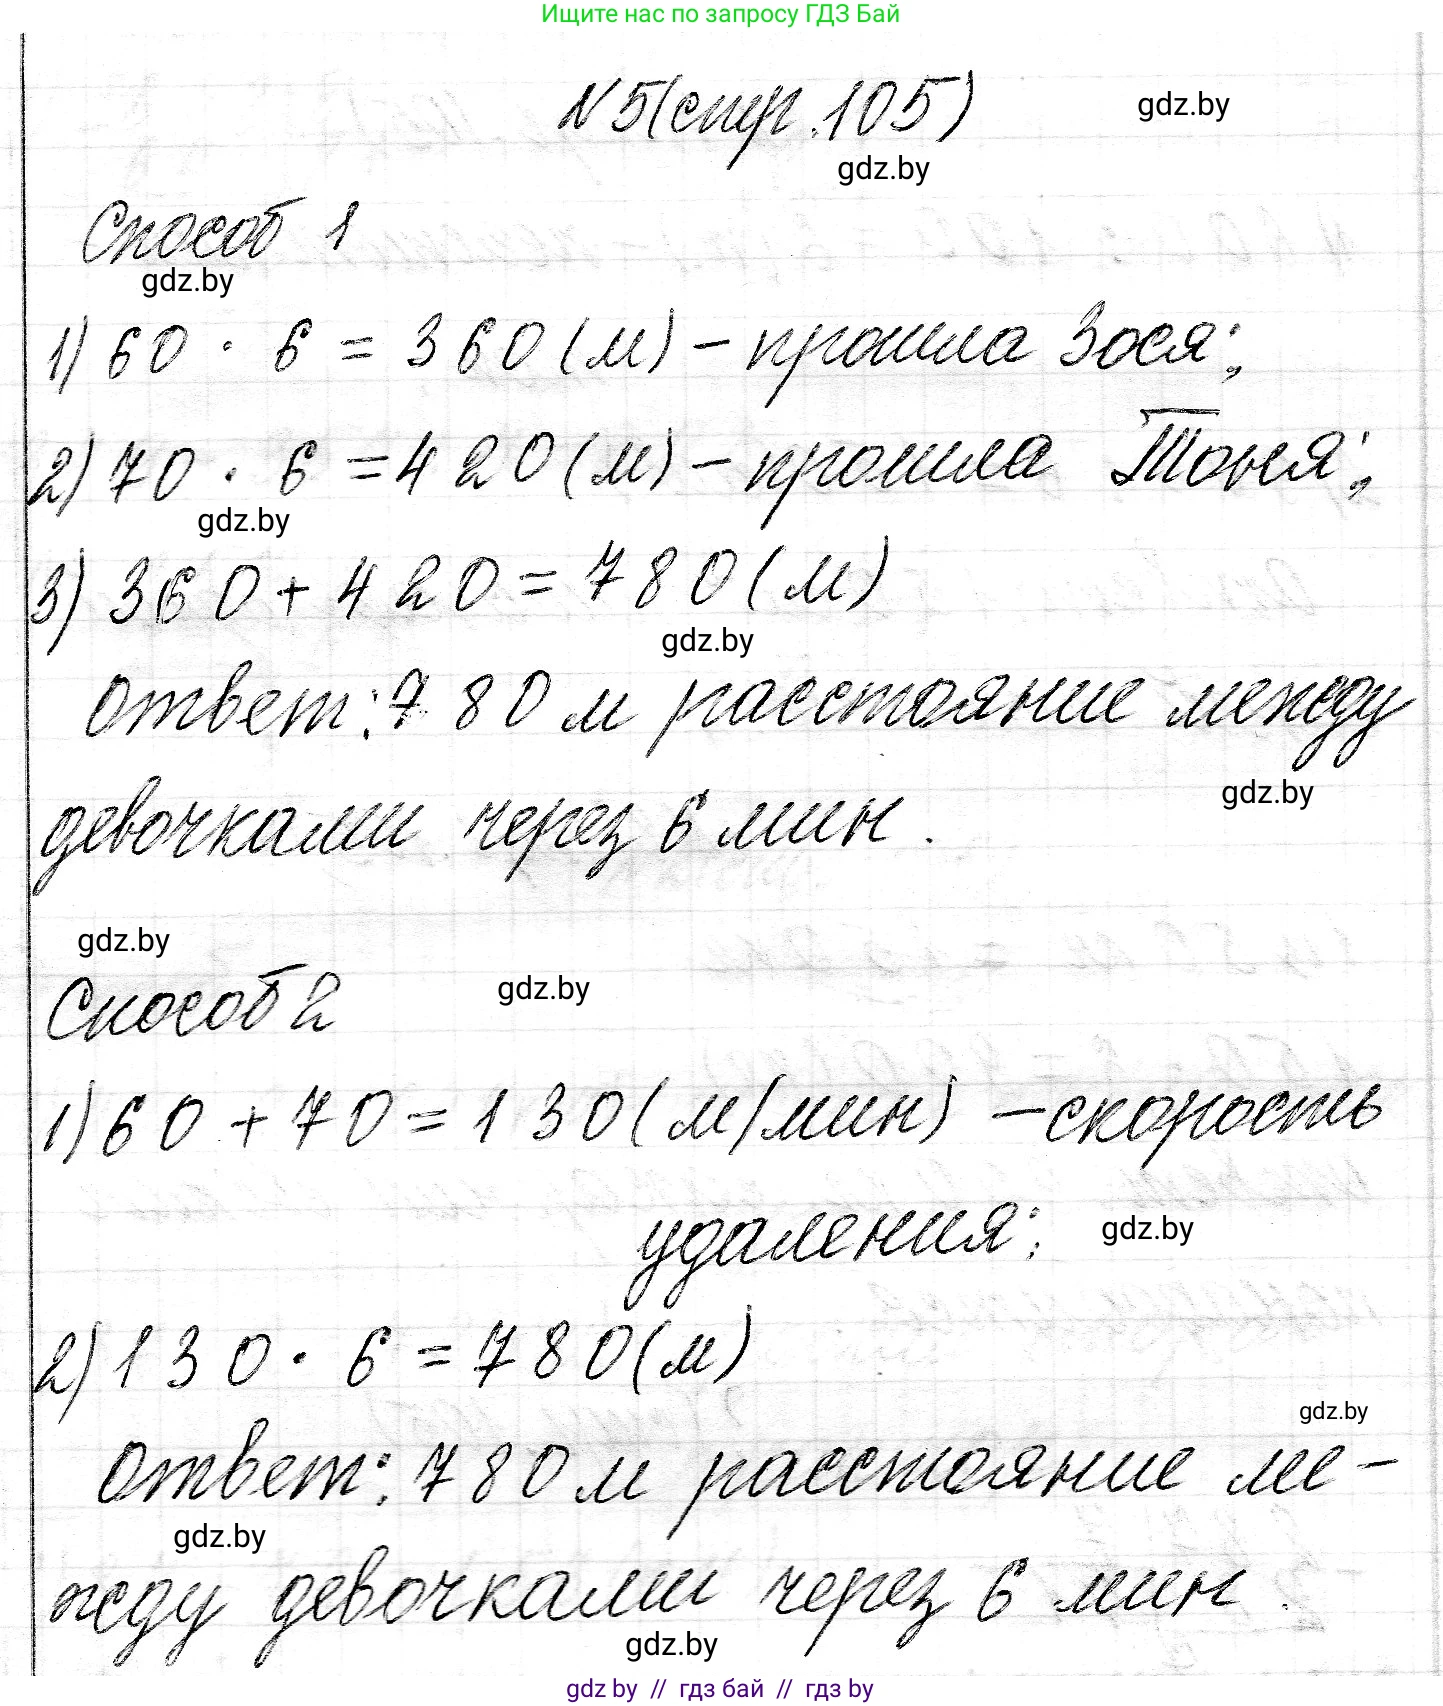 Ищите нас по запросу ГДЗ Бай
N5(стр.105) gdz.by
gdz.by
Способ 1
gdz.by
1) 60 · 6 = 360 (м) - прошла Зося;
2) 70 · 6 = 420 (м) - прошла Тоня;
gdz.by
3) 360 + 420 = 780 (м)
gdz.by
Ответ: 780 м расстояние между
gdz.by
девочками через 6 мин.
gdz.by
gdz.by
Способ 2
1) 60 + 70 = 130 (м/мин) - скорость
удаления; gdz.by
2) 130 · 6 = 780 (м)
gdz.by
Ответ: 780 м расстояние ме-
gdz.by
жду девочками через 6 мин.
gdz.by
gdz by // гдз бай // гдз by